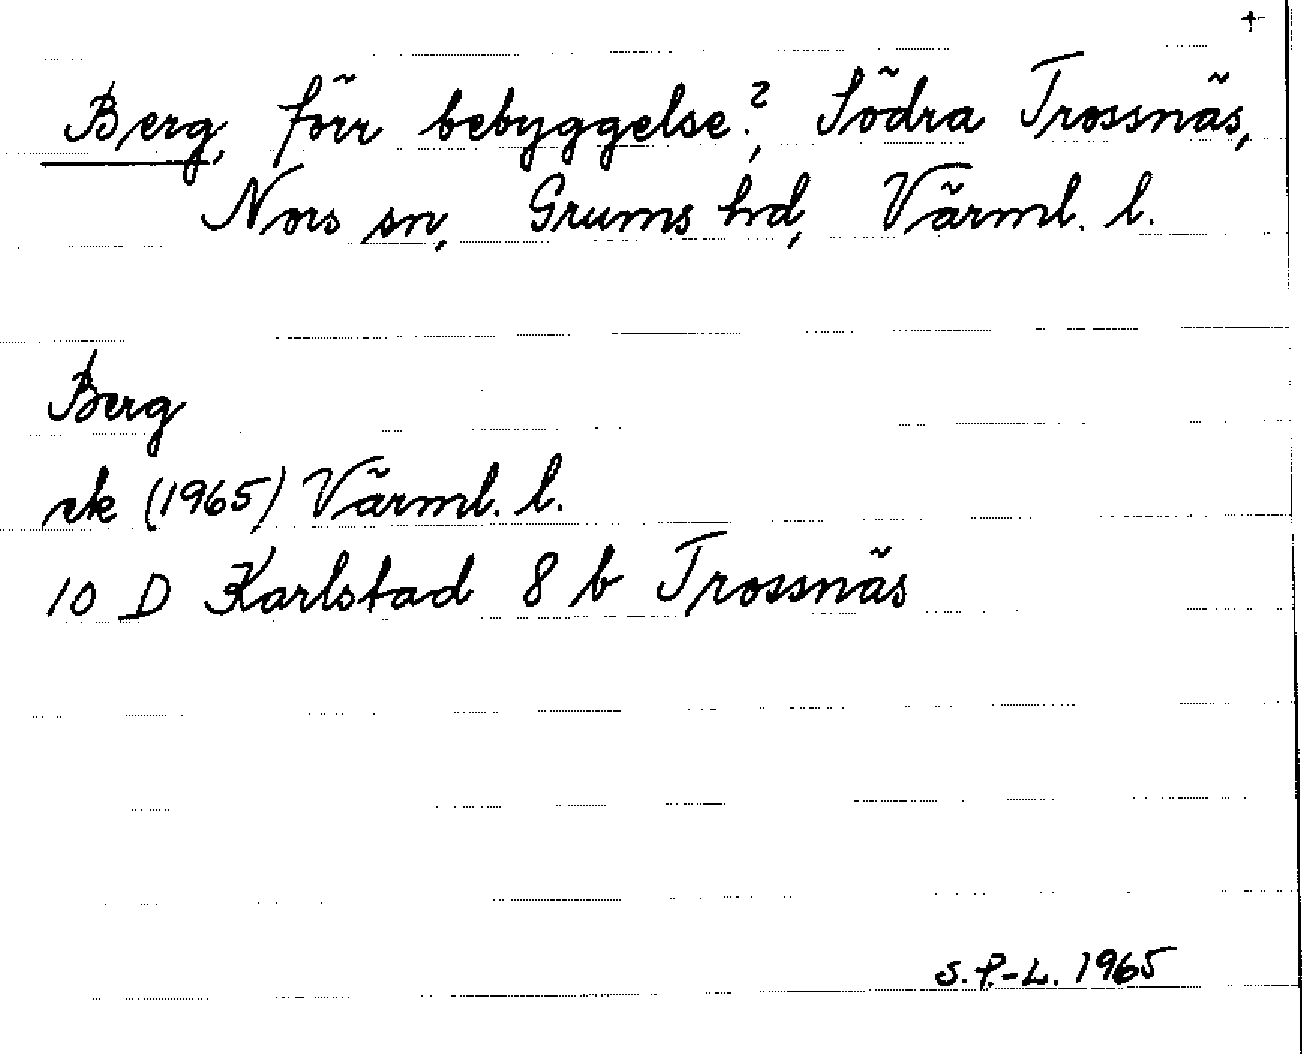 +
Berg, förr bebyggelse?, Södra Trossnäs,
Nors sn, Grums hd, Värml. l.
Berg
rk (1965) Värml. l.
10 D Karlstad 8 b Trossnäs
S.P.-L. 1965